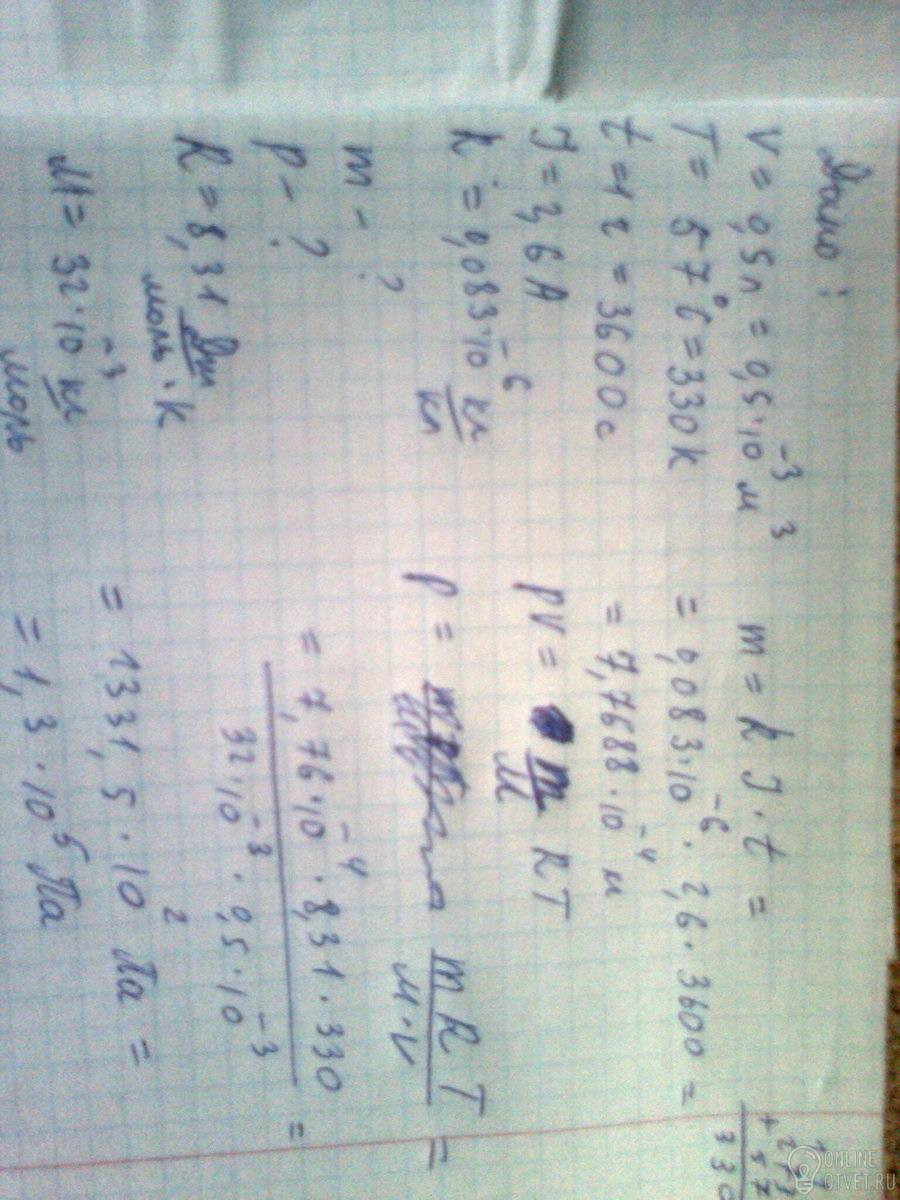 Дано:
V = 0,5л = 0,5·10⁻³ м³
T = 57°C = 330 К
t = 1 ч = 3600 с
J = 2,6 А
k = 0,083·10⁻⁶ кг/кл
m - ?
p - ?
R = 8,31 Дж/моль·К
M = 32·10⁻³ кг/моль
m = k J·t =
= 0,083·10⁻⁶·2,6·3600 =
= 7,7688·10⁻⁴ кг
pV = m/M RT
p = mRT/M·V =
= 7,76·10⁻⁴·8,31·330 / 32·10⁻³·0,5·10⁻³ =
= 1331,5·10² Па =
= 1,3·10⁵ Па
+ 57
330
ONLINE
OTVET.RU